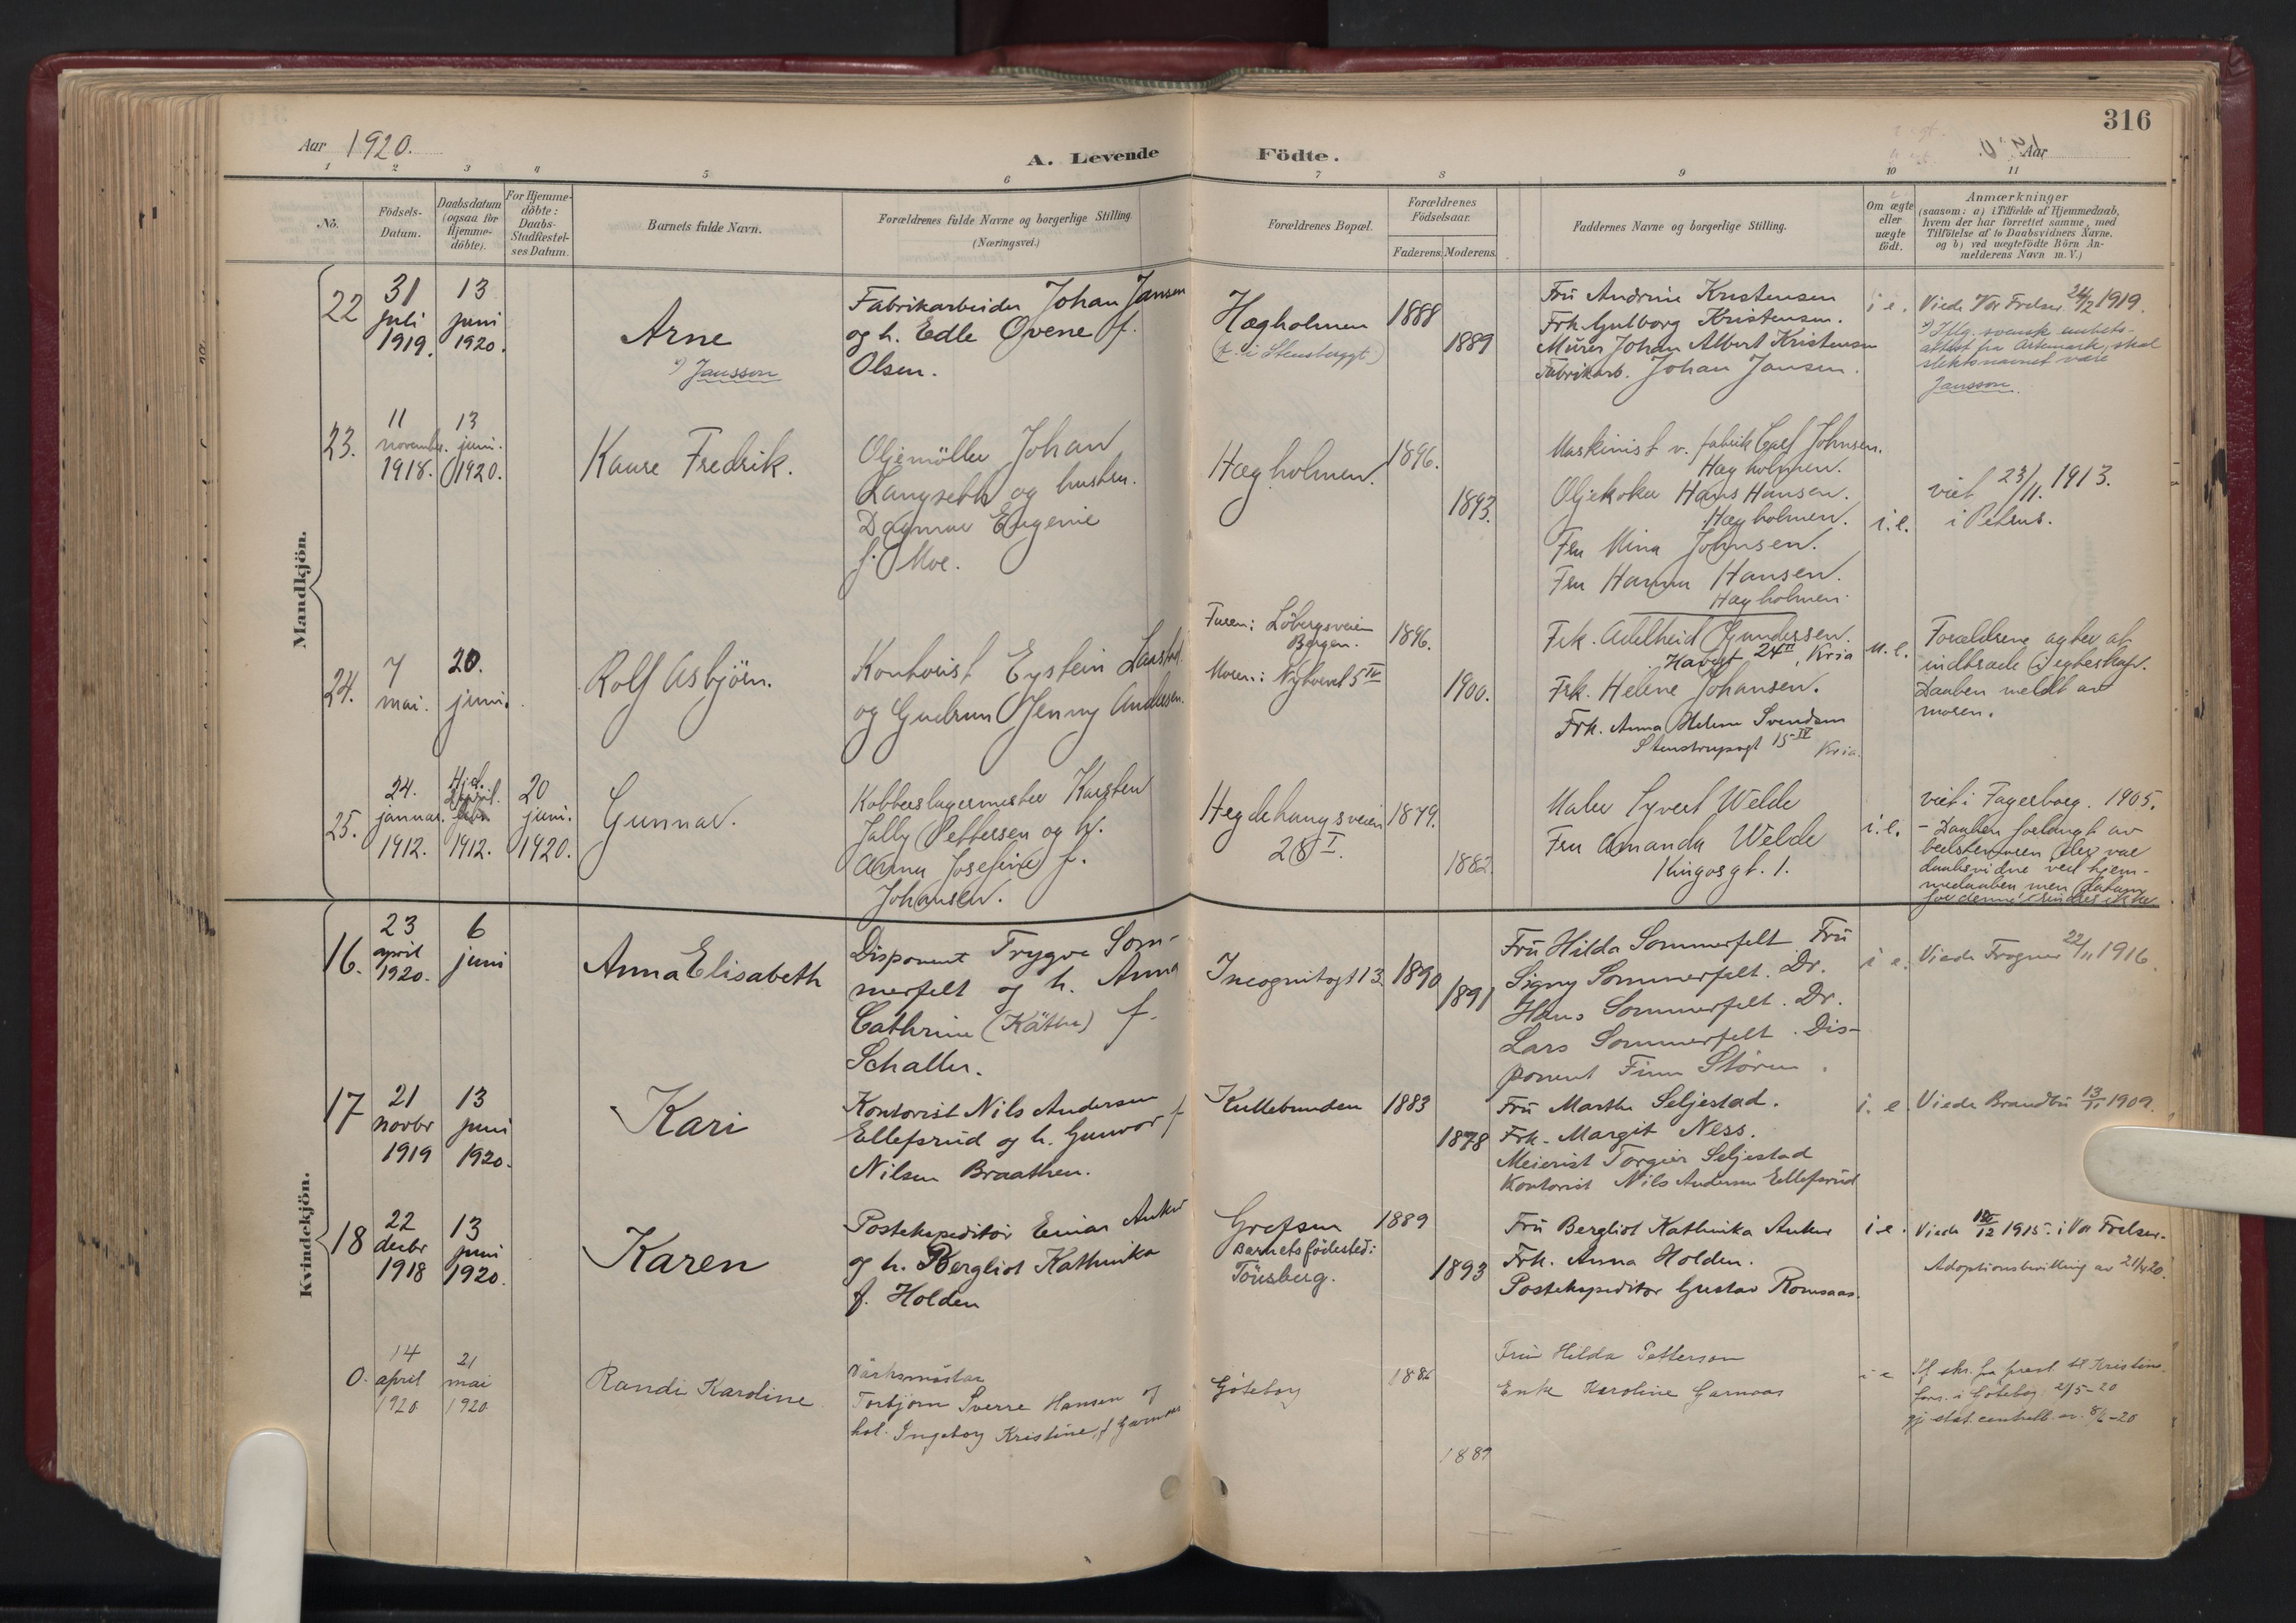 316
Aar 1920.
A. Levende Födte.
Aar
1 2 3 4 5 6 7 8 9 10 11
No.
Födsels-Datum.
Daabsdatum (ogsaa for Hjemme-döbte).
For Hjemme-döbte: Daabs-Stadfestel-ses Datum.
Barnets fulde Navn.
Forældrenes fulde Navne og borgerlige Stilling.
(Næringsvei.)
Forældrenes Bopæl.
Forældrenes Födselsaar.
Faderens. Moderens.
Faddernes Navne og borgerlige Stilling.
Om ægte eller uægte födt.
Anmærkninger
(saasom: a) i Tilfælde af Hjemmedaab,
hvem der har forrettet samme, med
Tilföielse af to Daabsvidners Navne,
og b) ved uægtefödte Börn An-
melderens Navn m. V.)
Mandkjön.
22
31 juli 1919.
13 juni 1920.
Arne
x) Jansson
Fabrikarbeider Johan Jansen
og h. Edle Ovene f.
Olsen.
Hægholmen
(f. i Stensberggt.)
1888
1889
Fru Andrine Kristensen
Frk. Gulborg Kristensen.
Murer Johan Albert Kristensen
Fabrikarb. Johan Jansen.
i e.
Viede Vor Frelser 24/2 1919.
x) Iflg. svensk embets-
attest fra Artemark, skal
slektsnavnet være
Jansson.
23.
11 november. 1918.
13 juni. 1920.
Kaare Fredrik.
Oljemöller Johan
Langseth og hustru.
Dagmar Eugenie
f. Moe.
Hægholmen.
1896.
1893.
Maskinist v. fabrik Carl Johnsen.
Hægholmen.
Oljekoker Hans Hansen.
Hægholmen.
Fru Mina Johnsen.
Fru Hanna Hansen.
Hægholmen.
i. e.
viet 23/11. 1913.
i Petrus.
24.
7 mai.
20. juni.
Rolf Asbjörn.
Kontorist Eystein Laastad
og Gudrun Jenny Andersen.
Faren: Löbergsveien
Bergen.
Moren: Nytorvet 5 IV
1896.
1900.
Frk. Adelheid Gundersen.
Havegt 24 II, Kria
Frk. Helene Johansen.
Frk. Anna Helene Svendsen
Stenstrupsgt 15 IV Kria.
u. e.
Forældrene agter at
indtræde i egteskap.
Daaben meldt av
moren.
25.
24. januar. 1912.
Hjd. 1912.
20 juni. 1920.
Gunnar.
Kobberslagermester Karsten
Jally Pettersen og h.
Anna Josefine f.
Johansen.
Hegdehaugsveien
28 I.
1879.
1882.
Maler Syvert Welde
Fru Amanda Welde
Kingosgt. 1.
i. e.
viet i Fagerborg. 1905.
- Daaben forlangt av
bedstemoren der var
daabsvidne ved hjem-
medaaben men datum
for denne erindres ikke
Kvindekjön.
16.
23 april 1920.
6 juni
Anna Elisabeth
Disponent Trygve Som-
merfelt og h. Anna
Cathrine (Käthe) f.
Schaller.
Incognitogt 13.
1890
1891
Fru Hilda Sommerfelt. Fru
Signy Sommerfelt. Dr.
Hans Sommerfelt. Dr.
Lars Sommerfelt. Dis-
ponent Finn Stören.
i e.
Viede Frogner 22/11 1916.
17
21 novbr 1919
13 juni 1920.
Kari
Kontorist Nils Andersen
Ellefsrud og h. Gunvor f
Nilsen Braathen.
Kullebunden
1883
1878
Fru Marthe Seljestad.
Frk. Margit Ness.
Meierist Torgeir Seljestad
Kontorist Nils Andersen Ellefsrud
i. e.
Viede Brandbu 13/11 1909.
18
22 decbr 1918
13 juni 1920.
Karen
Postekspeditör Einar Anker
og h. Bergliot Kathinka
f. Holden
Grefsen
Barnets födested:
Tönsberg.
1889
1893
Fru Bergliot Kathinka Anker
Frk. Anna Holden.
Postekspeditör Gustav Romsaas.
i e.
Viede /12 1915 i Vor Frelser.
Adoptionsbevilling av 21/4 20.
0.
14 april 1920
21 mai 1920
Randi Karoline
Værksmästar
Torbjörn Sverre Hansen og
hst. Ingeborg Kristine, f Garnaas
Göteborg
1886
1889
Fru Hilda Petterson
Enke Karoline Garnaas
i e
If. skr. fra prest til Kristine
fors. i Göteborg 2/5-20
stat. centralb. av 8/6-20